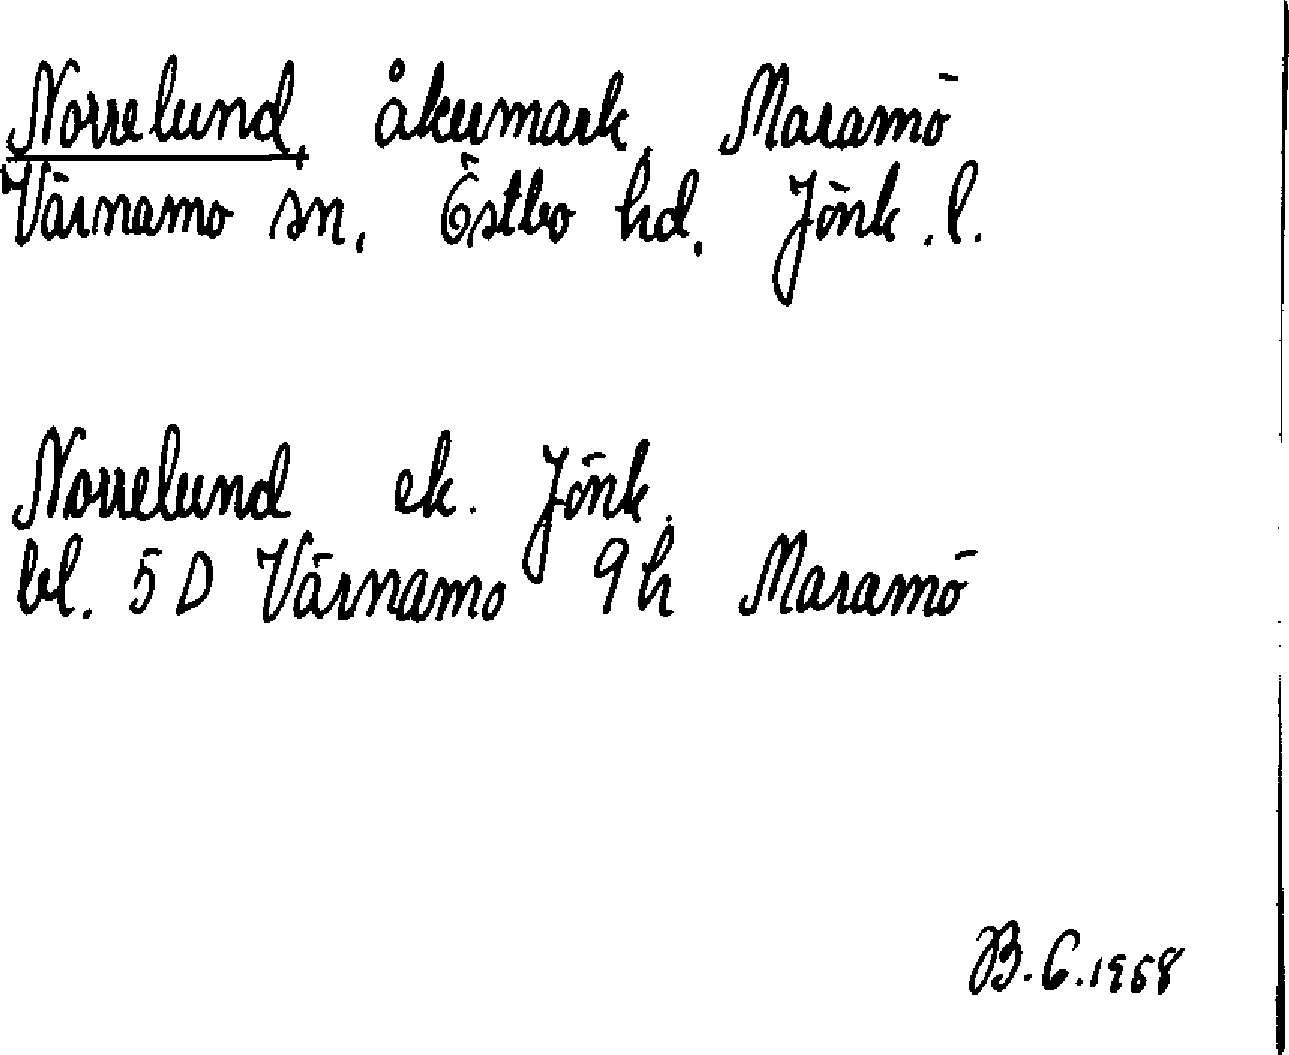 Norrelund, åkermark, Maramö
Värnamo sn, Östbo hd, Jönk.l.
Norrelund ek. Jönk.
bl. 5 D Värnamo 9h Maramö
B.G.1968